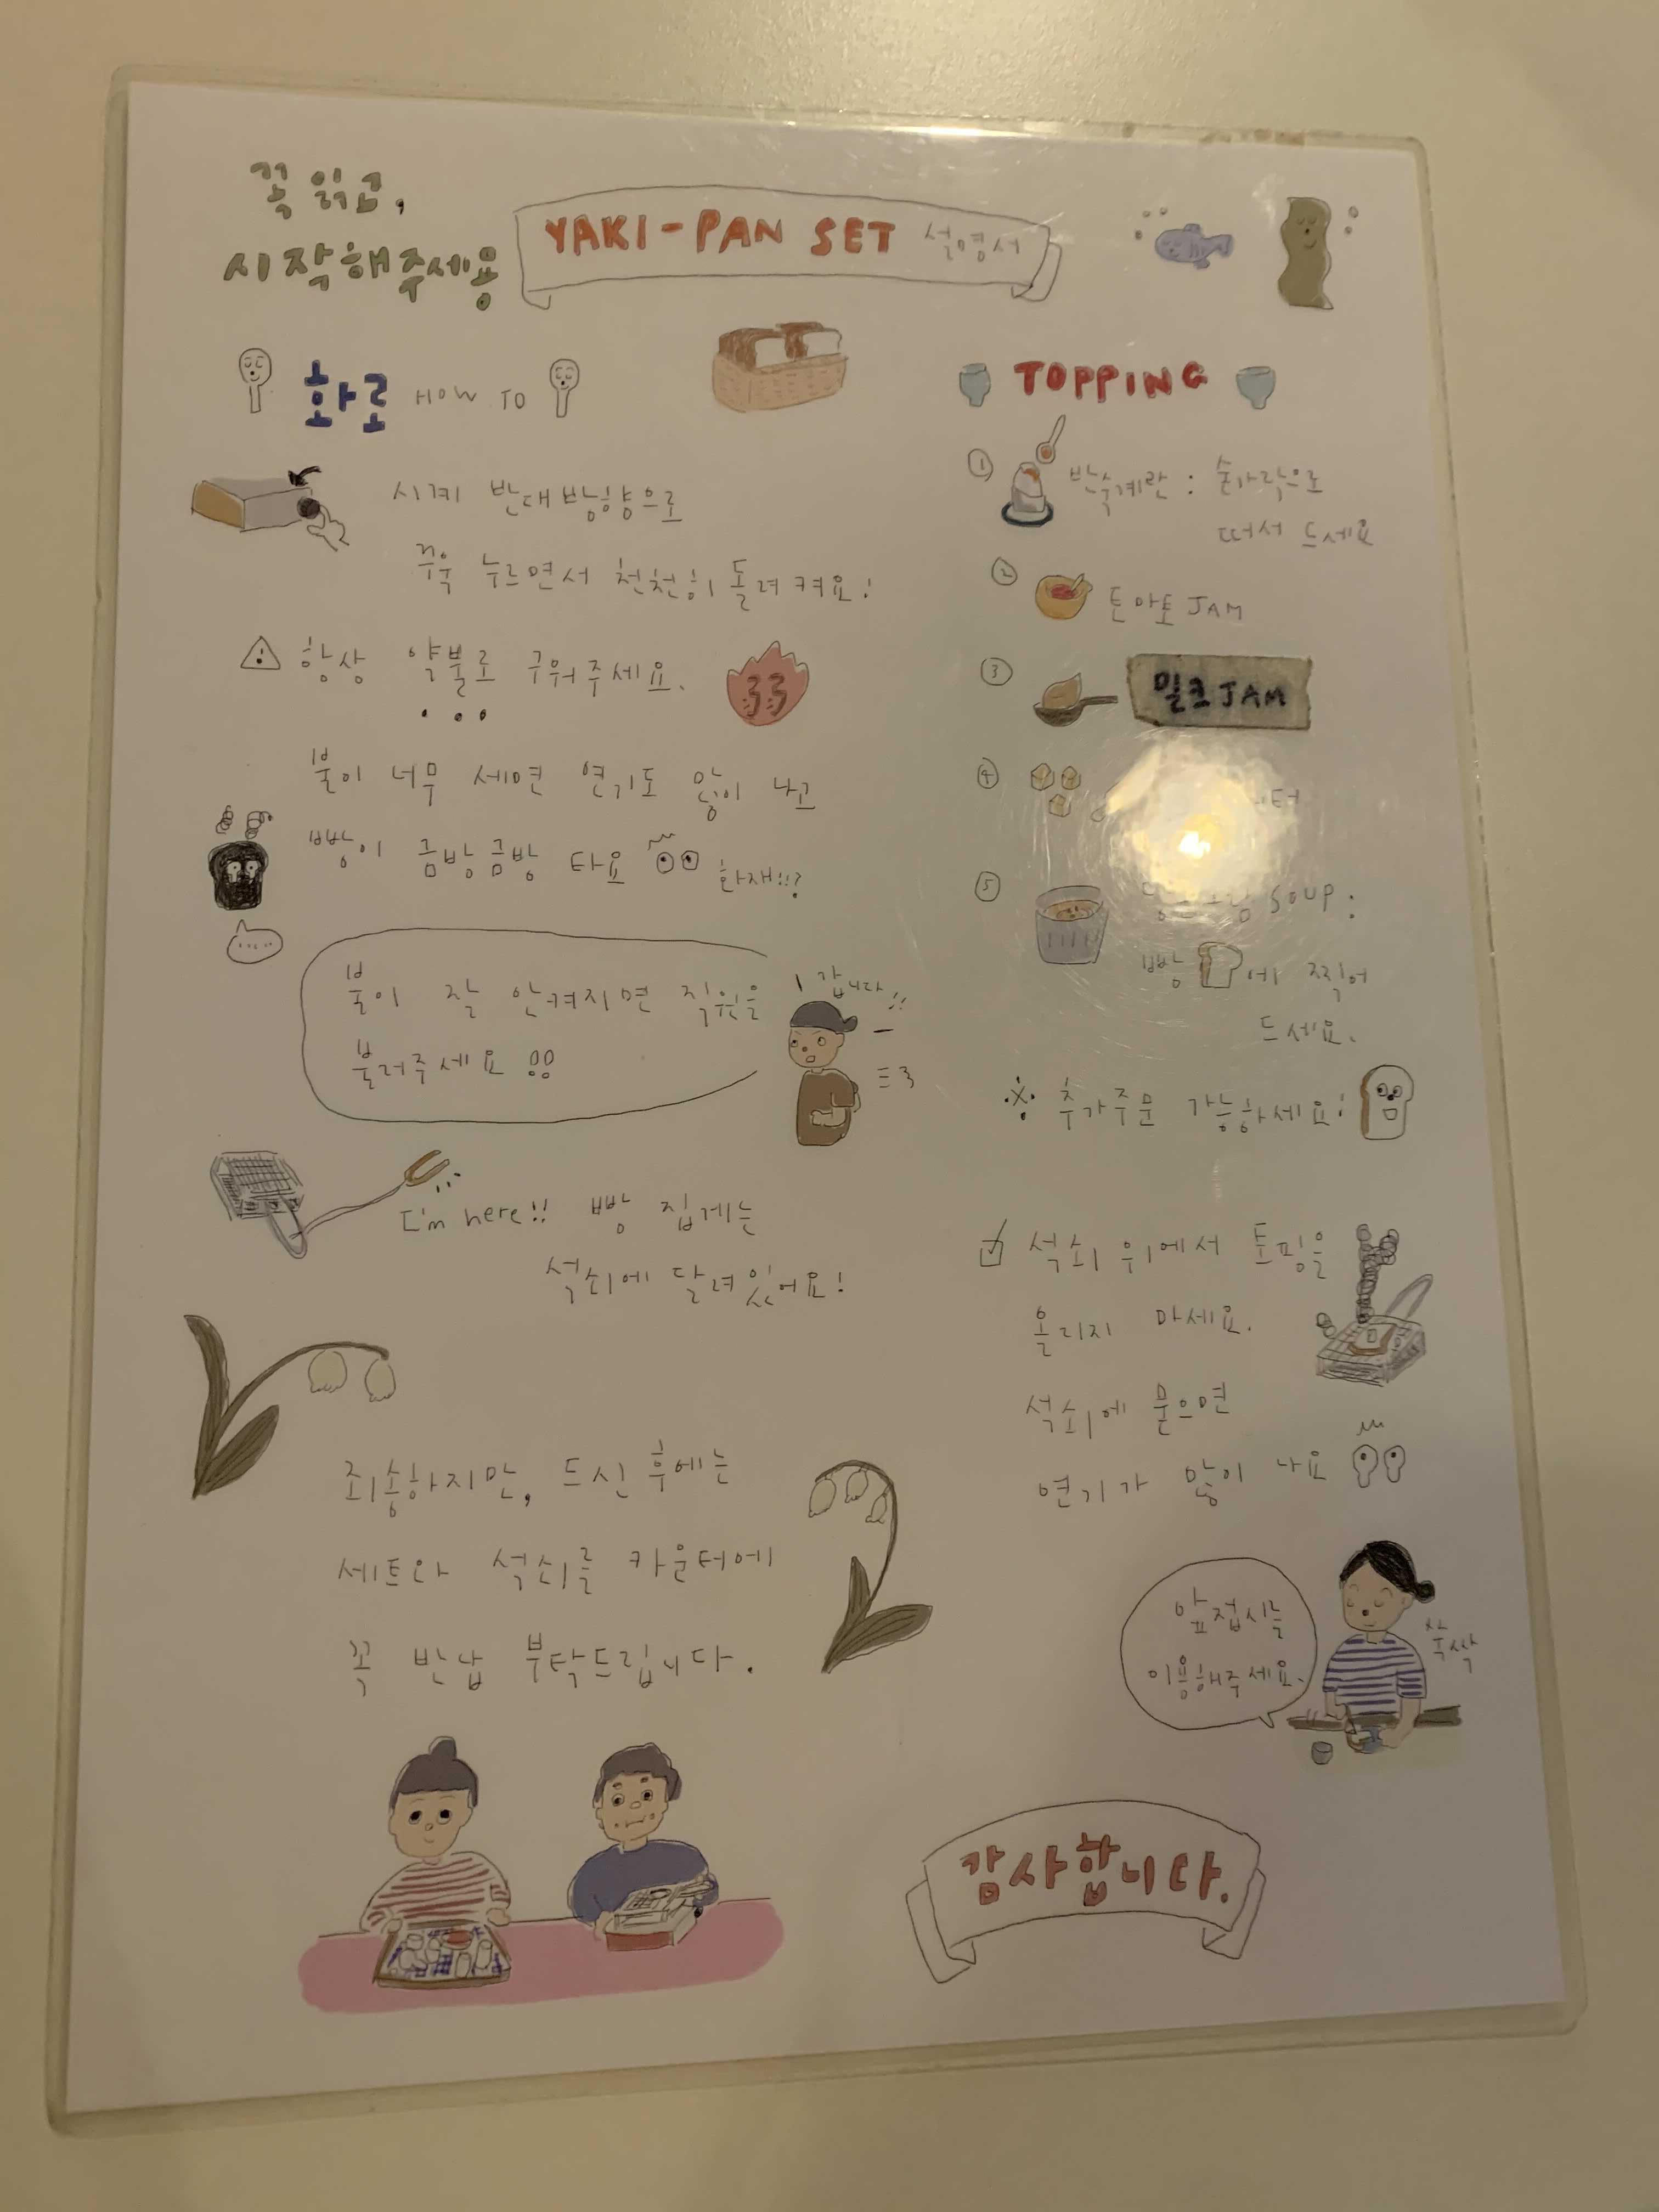 꼭 읽고,
시작해주세용
YAKI-PAN SET 설명서
화로 HOW TO
시계 반대방향으로
꾸욱 누르면서 천천히 돌려 켜요!
항상 약불로 구워주세요.
불이 너무 세면 연기도 많이 나고
빵이 금방금방 타요 화재!!?
불이 잘 안켜지면 직원을
불러주세요
갑니다!!
I'm here!! 빵 집게는
석쇠에 달려있어요!
죄송하지만, 드신 후에는
세트와 석쇠를 카운터에
꼭 반납 부탁드립니다.
TOPPING
① 반숙계란 : 숟가락으로
떠서 드세요
② 토마토 JAM
③ 밀크 JAM
④
⑤ SOUP :
빵 에 찍어
드세요.
※ 추가주문 가능하세요!
석쇠 위에서 토핑을
올리지 마세요.
석쇠에 묻으면
연기가 많이 나요
앞접시를
이용해주세요.
슥삭
감사합니다.